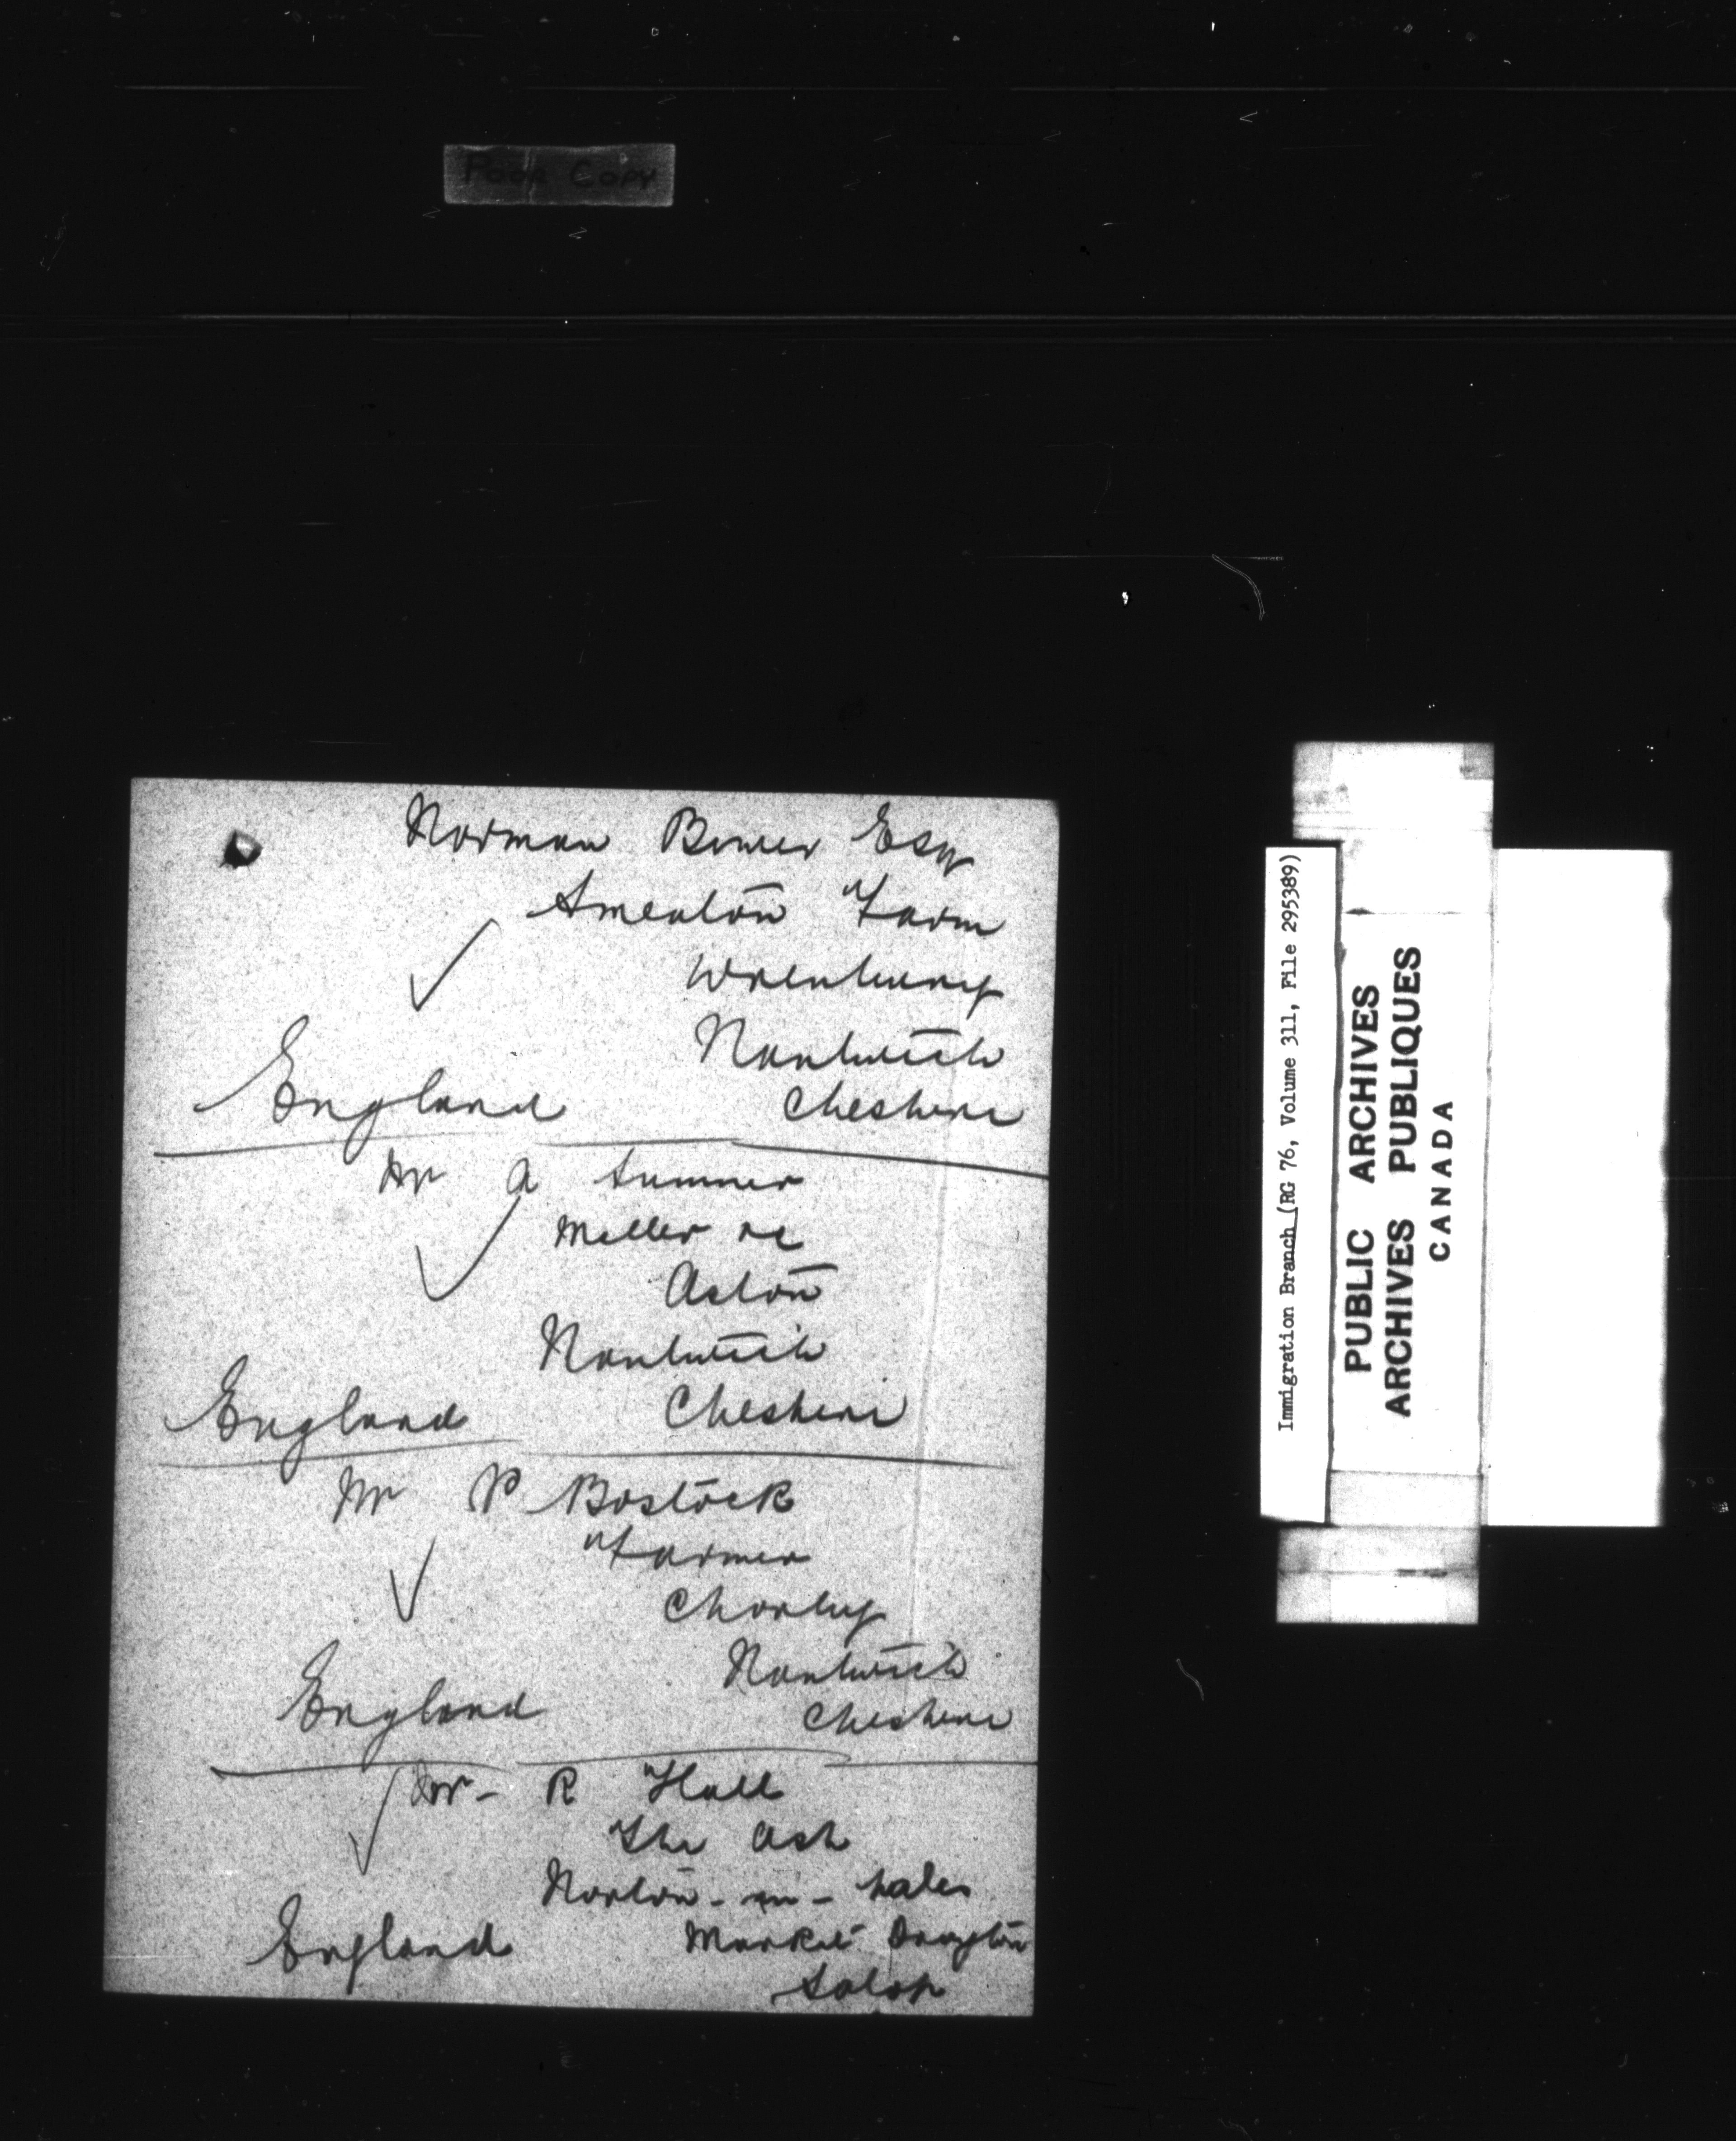 Poor Copy
Norman Bower Esq
Smeaton Farm
Wrenbury
Nantwich
England Cheshire
Mr A Sumner
Miller
Aston
Nantwich
England Cheshire
Mr P Bostock
Farmer
Chorley
Nantwich
England Cheshire
Mr - R Hall
The Ash
Norton - in - hales
England Market Drayton
Salop
Immigration Branch (RG 76, Volume 311, File 295389)
PUBLIC ARCHIVES
ARCHIVES PUBLIQUES
CANADA